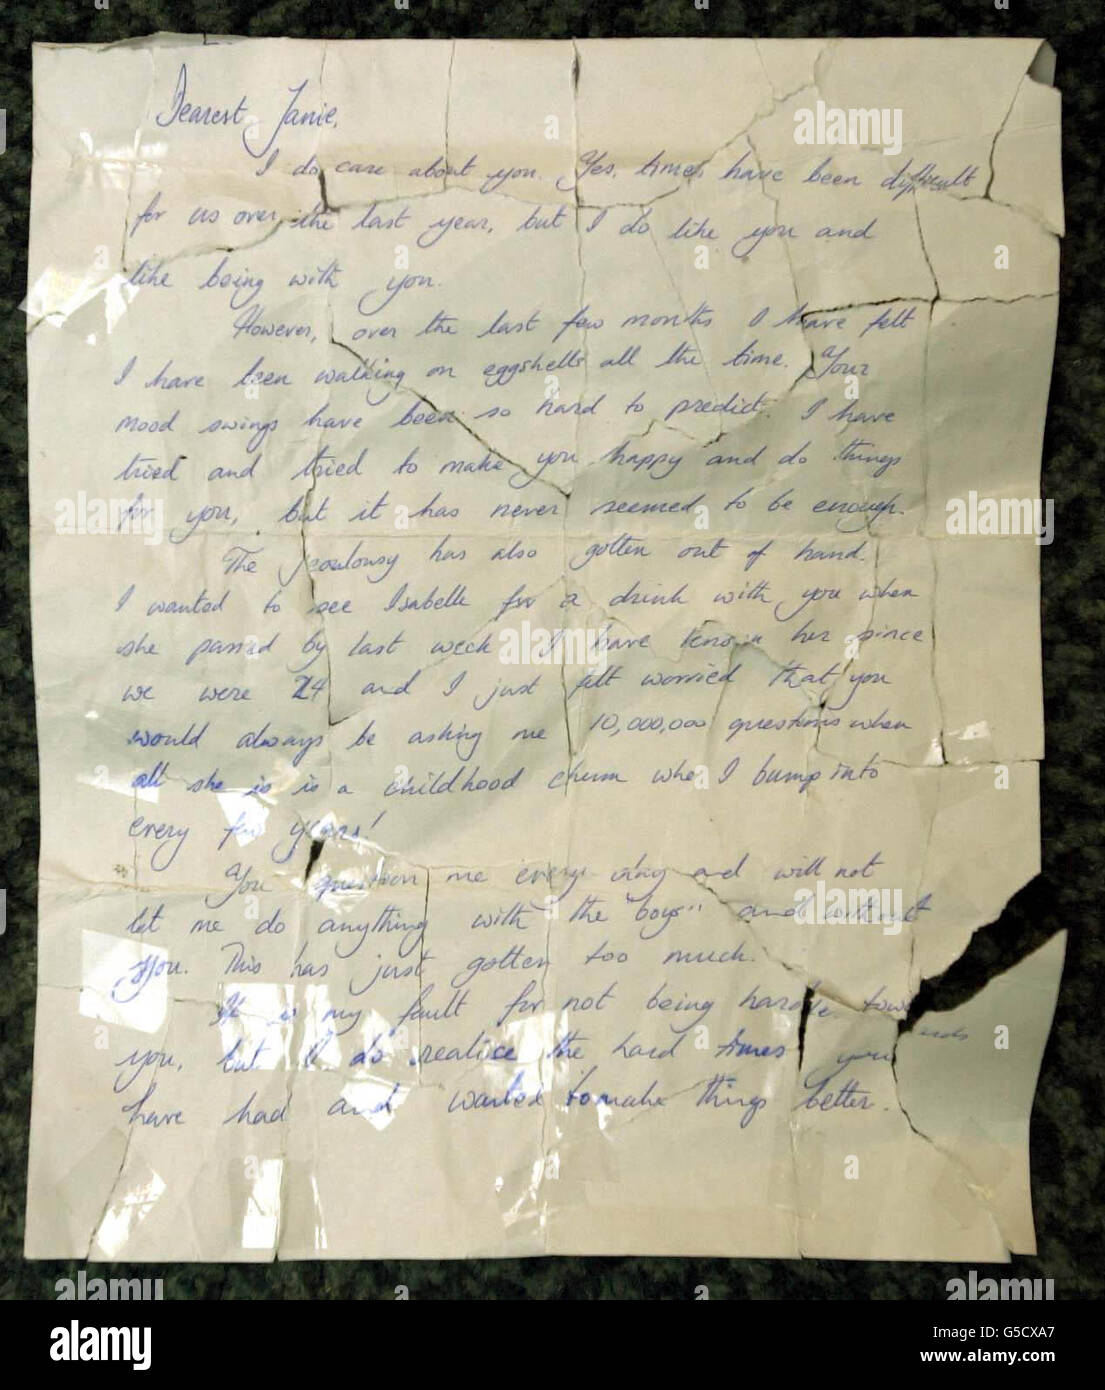 Dearest Janie,
I do care about you. Yes, times have been difficult
for us over the last year, but I do like you and
like being with you.
However, over the last few months I have felt
I have been walking on eggshells all the time. Your
mood swings have been so hard to predict. I have
tried and tried to make you happy and do things
for you, but it has never seemed to be enough.
The jealousy has also gotten out of hand.
I wanted to see Isabelle for a drink with you when
she passed by last week I have known her since
we were 24 and I just felt worried that you
would always be asking me 10,000,000 questions when
all she is is a childhood chum who I bump into
every few years!
You question me every day and will not
let me do anything with the "boys" and without
you. This has just gotten too much.
It is my fault for not being harder towards
you, but I do realise the hard times you
have had and wanted to make things better.
alamy
alamy
alamy
alamy
alamy
alamy
alamy
a
a
a
a
alamy
G5CXA7
www.alamy.com